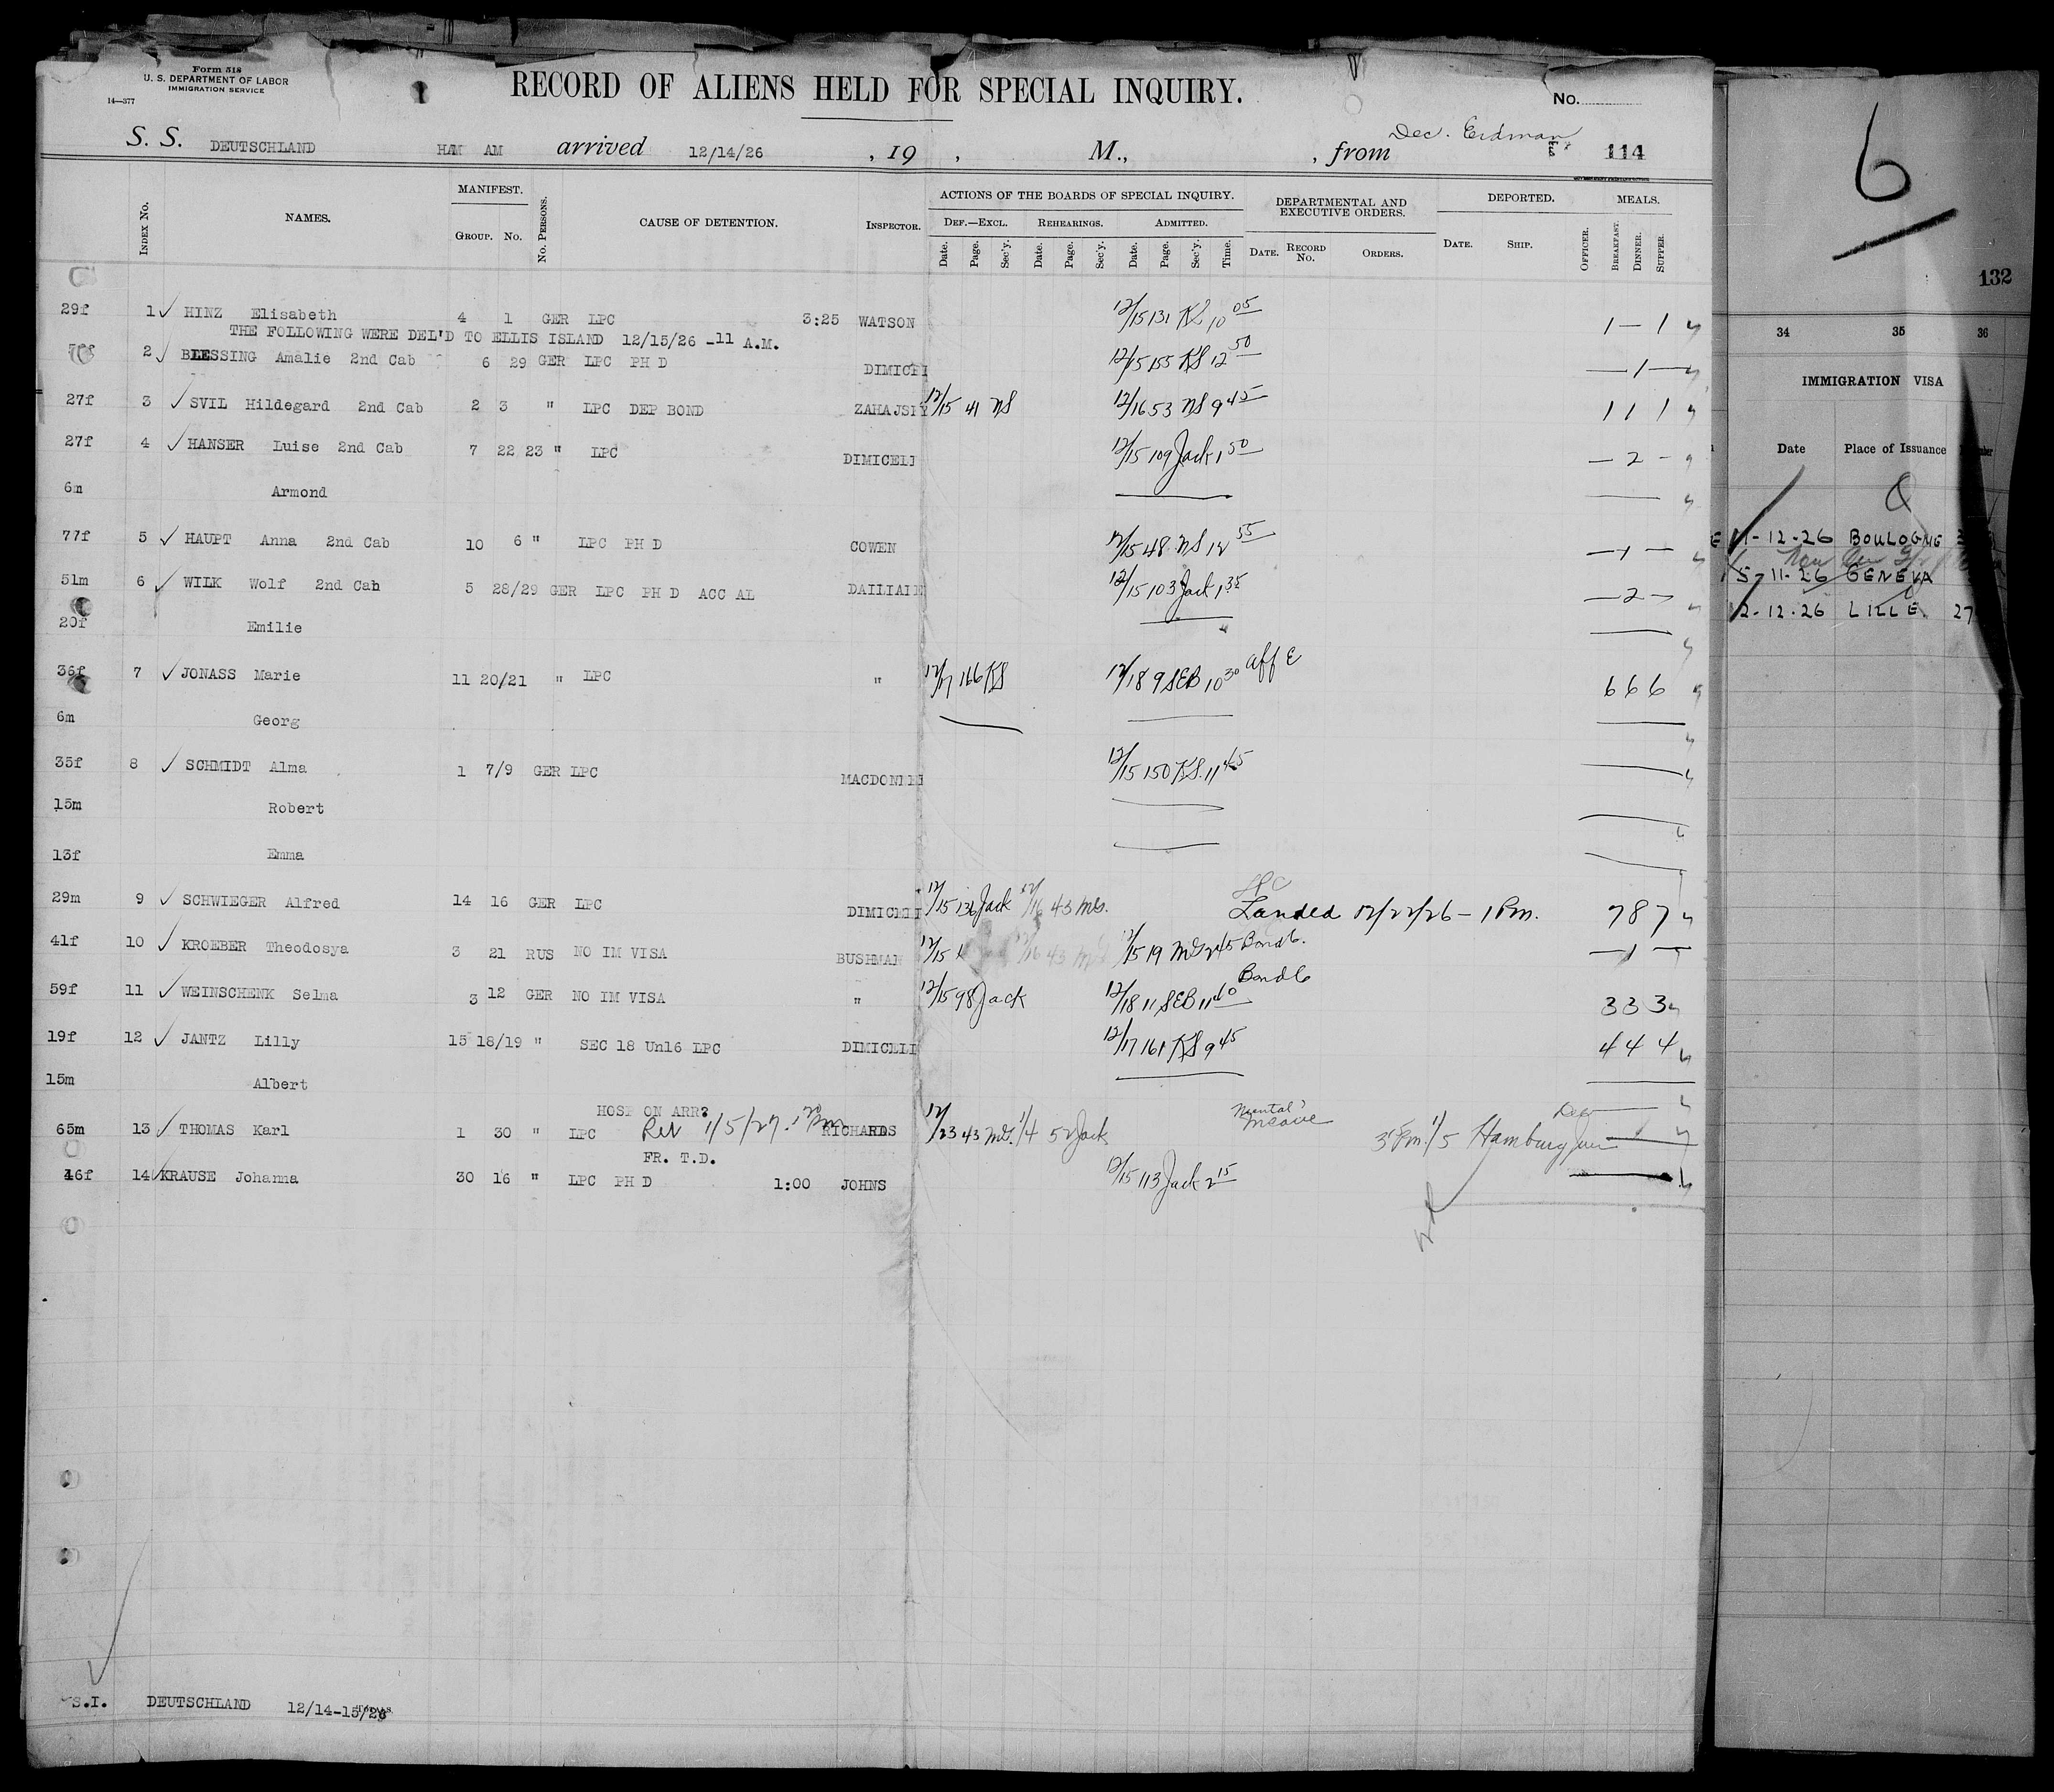 Form 518
U. S. DEPARTMENT OF LABOR
IMMIGRATION SERVICE
14—377
RECORD OF ALIENS HELD FOR SPECIAL INQUIRY.
No.
S. S. DEUTSCHLAND HAM AM arrived 12/14/26 , 19 , M., , from Dec. Erdman 114
INDEX No. NAMES. MANIFEST. GROUP. No. No. PERSONS. CAUSE OF DETENTION. INSPECTOR. ACTIONS OF THE BOARDS OF SPECIAL INQUIRY. DEPARTMENTAL AND EXECUTIVE ORDERS. DEPORTED. MEALS.
DEF.—EXCL. REHEARINGS. ADMITTED.
Date. Page. Sec'y. Date. Page. Sec'y. Date. Page. Sec'y. Time. DATE. RECORD No. ORDERS. DATE. SHIP. OFFICER. BREAKFAST. DINNER. SUPPER.
29f 1 ✓ HINZ Elisabeth 4 1 GER LPC 3:25 WATSON 12/15 131 KS 10 05 1 — 1
THE FOLLOWING WERE DEL'D TO ELLIS ISLAND 12/15/26 -11 A.M.
2 ✓ BLESSING Amalie 2nd Cab 6 29 GER LPC PH D DIMICELI 12/15 155 KS 12 50 — 1 —
27f 3 ✓ SVIL Hildegard 2nd Cab 2 3 " LPC DEP BOND ZAHAJSKY 12/15 41 NS 12/16 53 NS 9 45 1 1 1
27f 4 ✓ HANSER Luise 2nd Cab 7 22 23 " LPC DIMICELI 12/15 109 Jack 1 50 — 2 —
6m Armond
77f 5 ✓ HAUPT Anna 2nd Cab 10 6 " LPC PH D COWEN 12/15 48 NS 12 55 — 1 —
51m 6 ✓ WILK Wolf 2nd Cab 5 28/29 GER LPC PH D ACC AL 12/15 103 Jack 1 35 — 2 —
20f Emilie
36f 7 ✓ JONASS Marie 11 20/21 " LPC " 12/17 166 KS 12/18 9 SEB 10 30 aff E 6 6 6
6m Georg
35f 8 ✓ SCHMIDT Alma 1 7/9 GER LPC 12/15 150 KS 11 45
15m Robert
13f Emma
29m 9 ✓ SCHWIEGER Alfred 14 16 GER LPC DIMICELI 12/15 136 Jack 12/16 43 MG. LPC Landed 12/22/26 - 1 Pm. 7 8 7
41f 10 ✓ KROEBER Theodosya 3 21 RUS NO IM VISA BUSHMAN 12/15 12/15 19 MG 2 45 Bond 6. — 1 —
59f 11 ✓ WEINSCHENK Selma 3 12 GER NO IM VISA " 12/15 98 Jack 12/18 11 SEB 11 40 Bond 6 3 3 3
19f 12 ✓ JANTZ Lilly 15 18/19 " SEC 18 Un16 LPC DIMICELI 12/17 161 KS 9 45 4 4 4
15m Albert
HOSP ON ARR?
65m 13 ✓ THOMAS Karl 1 30 " LPC Rel 1/5/27 RICHARDS 12/23 43 MG. 1/4 52 Jack Mental 3 Pm. 1/5 Hamburg
FR. T.D.
46f 14 ✓ KRAUSE Johanna 30 16 " LPC PH D 1:00 JOHNS 12/15 113 Jack 2 15
S.I. DEUTSCHLAND 12/14-15/26
6
132
34 35 36
IMMIGRATION VISA
Date Place of Issuance
11-12-26 BOULOGNE
5-11-26 GENEVA
2-12-26 LILLE 27